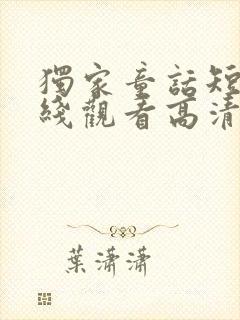 獨家童話短
綫觀看高清
葉瀟瀟